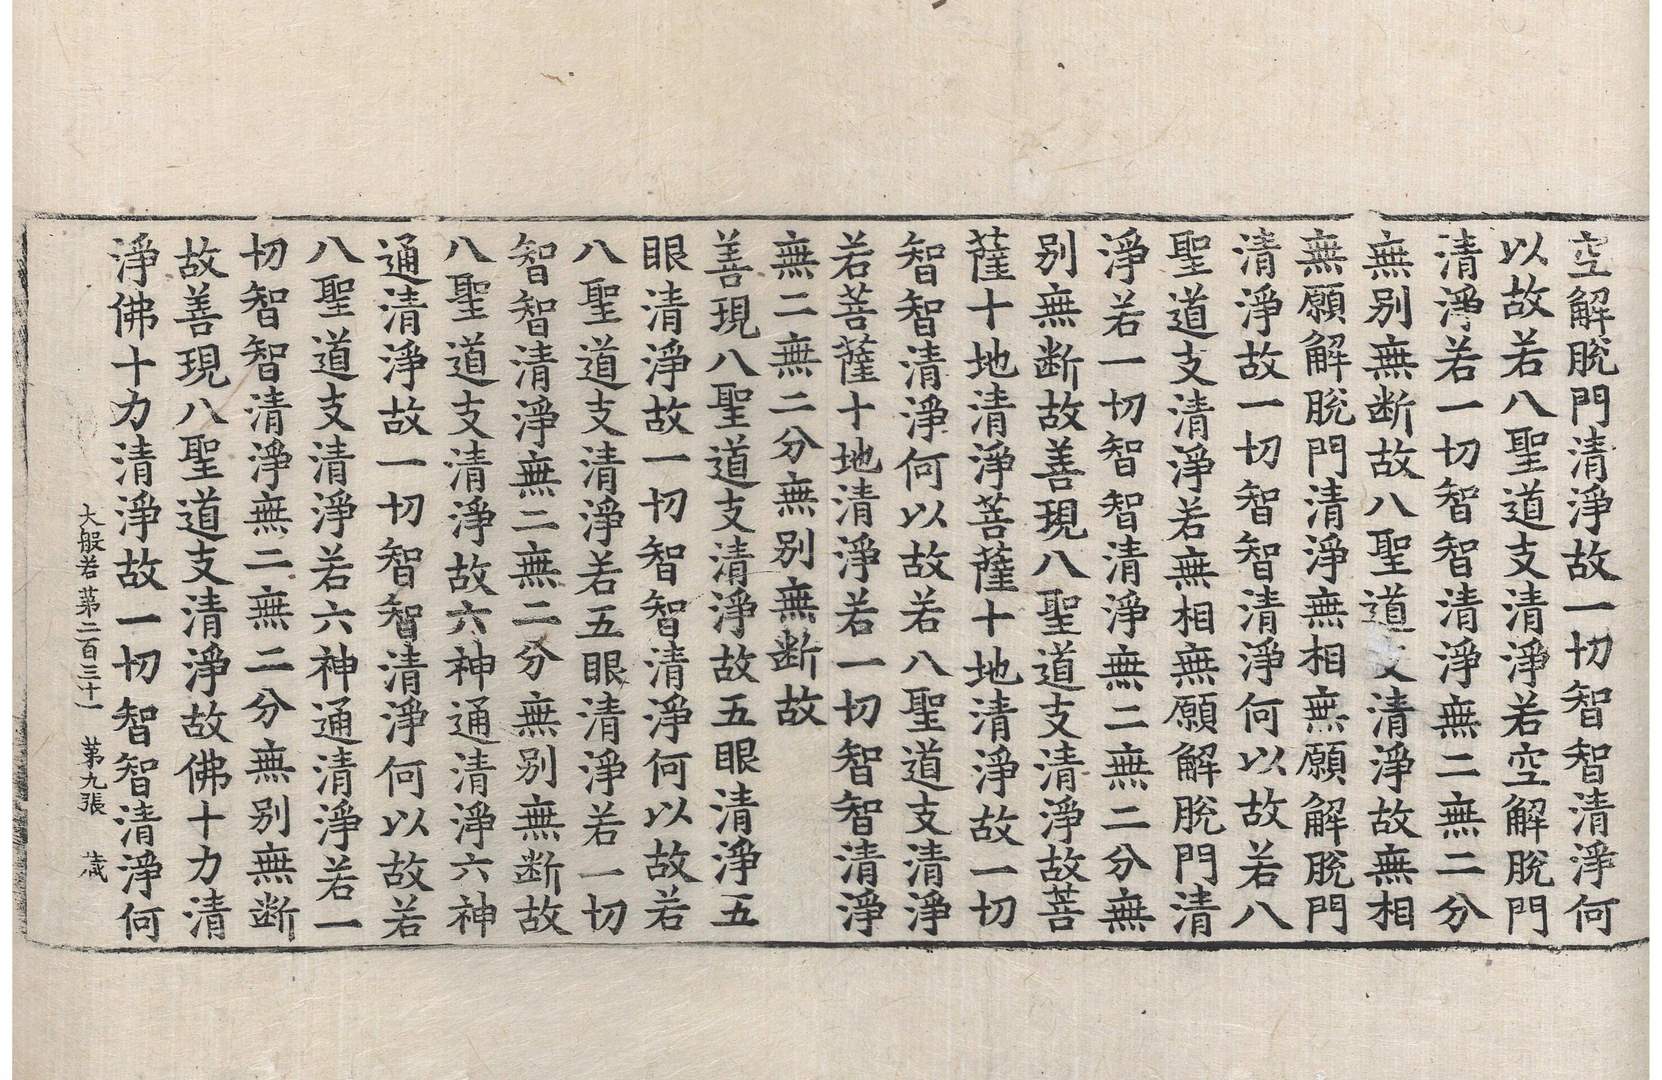 空解脫門清淨故一切智智清淨何
以故若八聖道支清淨若空解脫門
清淨若一切智智清淨無二無二分
無别無断故八聖道支清淨故無相
無願解脫門清淨無相無願解脫門
清淨故一切智智清淨何以故若八
聖道支清淨若無相無願解脫門清
淨若一切智智清淨無二無二分無
别無断故善現八聖道支清淨故菩
薩十地清淨菩薩十地清淨故一切
智智清淨何以故若八聖道支清淨
若菩薩十地清淨若一切智智清淨
無二無二分無别無断故
善現八聖道支清淨故五眼清淨五
眼清淨故一切智智清淨何以故若
八聖道支清淨若五眼清淨若一切
智智清淨無二無二分無别無断故
八聖道支清淨故六神通清淨六神
通清淨故一切智智清淨何以故若
八聖道支清淨若六神通清淨若一
切智智清淨無二無二分無别無断
故善現八聖道支清淨故佛十力清
淨佛十力清淨故一切智智清淨何
大般若第二百三十一 第九張 蔵